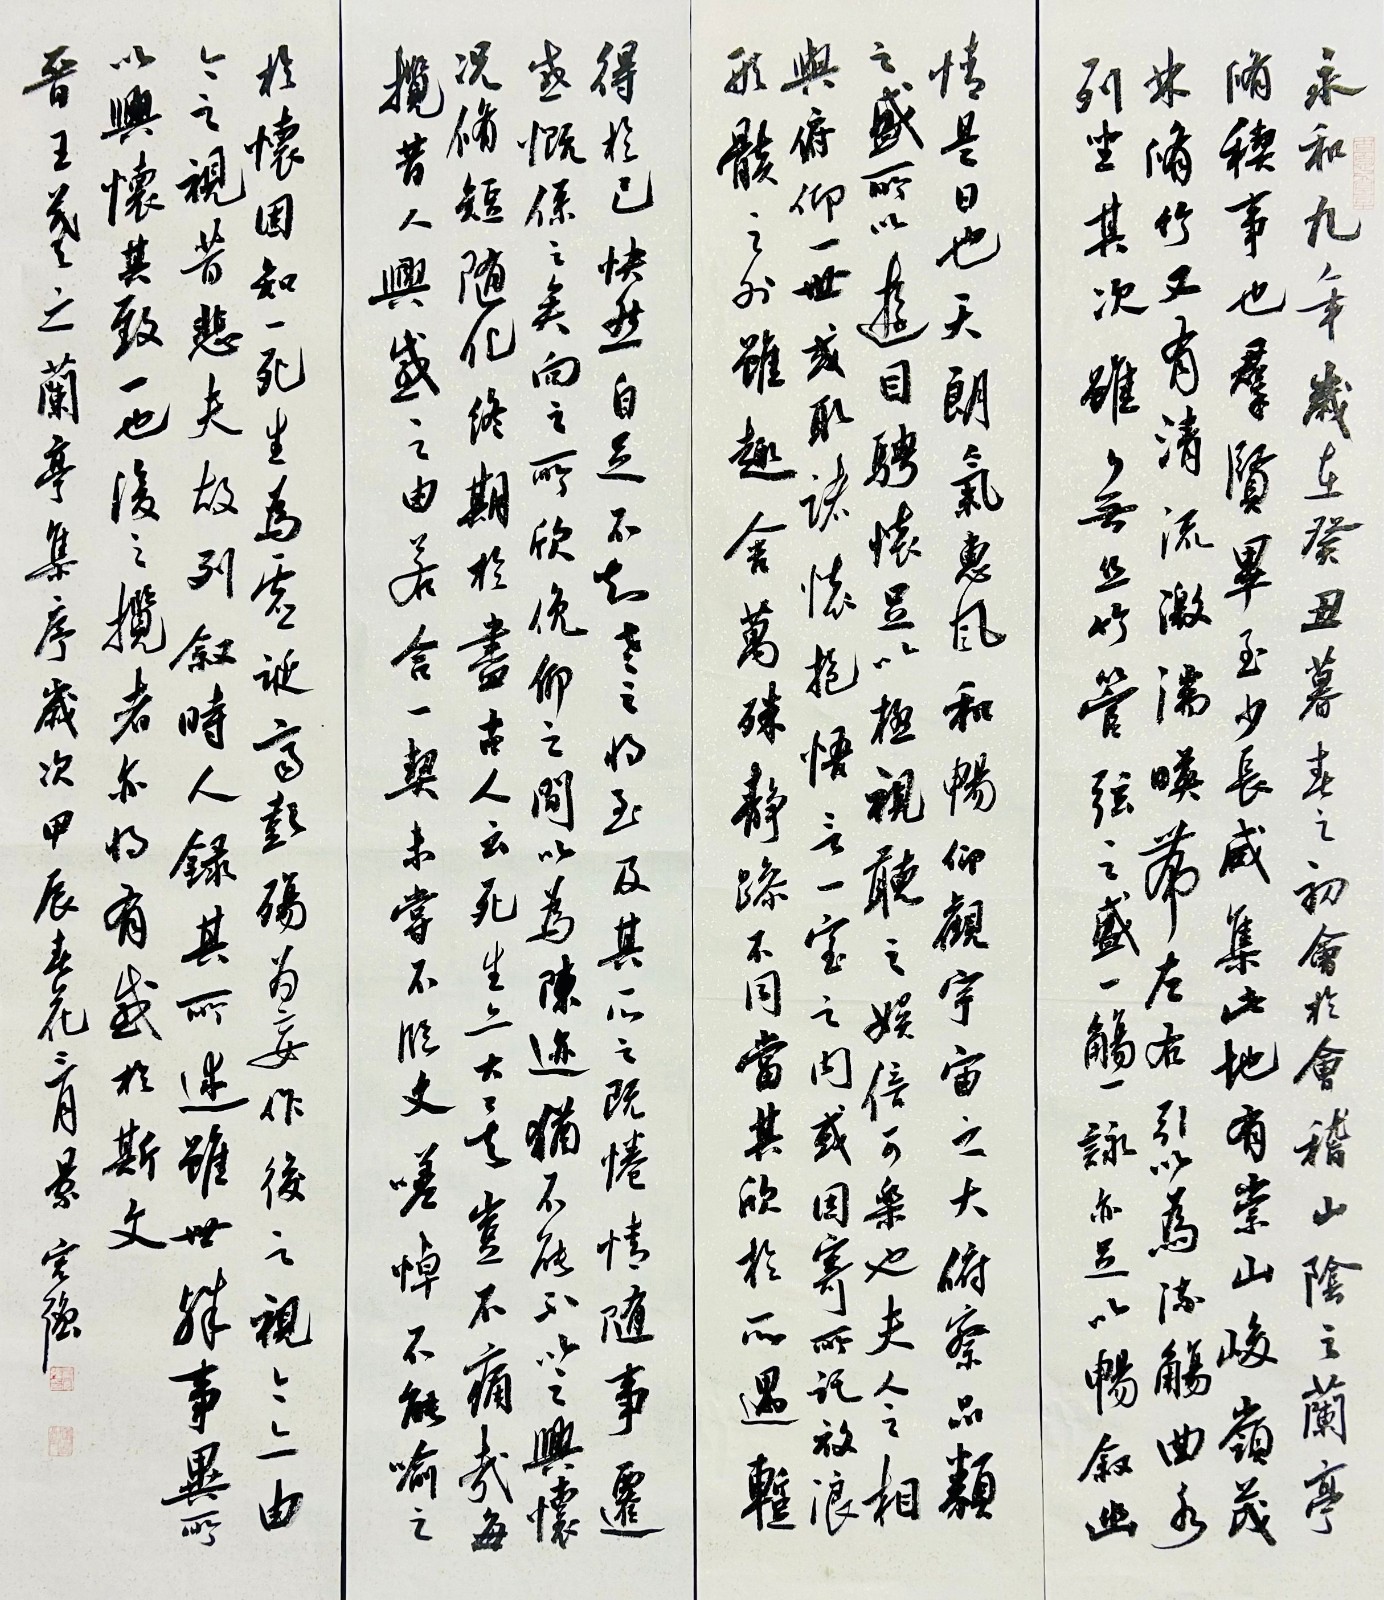 永和九年歲在癸丑暮春之初會於會稽山陰之蘭亭
脩稧事也羣賢畢至少長咸集此地有崇山峻嶺茂
林脩竹又有清流激湍暎帶左右引以為流觴曲水
列坐其次雖無絲竹管弦之盛一觴一詠亦足以暢敘幽
情是日也天朗氣惠風和暢仰觀宇宙之大俯察品類
之盛所以遊目騁懷足以極視聽之娛信可樂也夫人之相
與俯仰一世或取諸懷抱悟言一室之內或因寄所託放浪
形骸之外雖趣舍萬殊靜躁不同當其欣於所遇暫
得於己快然自足不知老之將至及其所之既惓情隨事遷
感慨係之矣向之所欣俛仰之間以為陳迹猶不能不以之興懷
況脩短隨化終期於盡古人云死生亦大矣豈不痛哉每
攬昔人興感之由若合一契未嘗不臨文嗟悼不能喻之
於懷固知一死生為虛誕齊彭殤為妄作後之視今亦由
今之視昔悲夫故列敘時人錄其所述雖世殊事異所
以興懷其致一也後之攬者亦將有感於斯文
晉王羲之蘭亭集序歲次甲辰春花三月景宏強